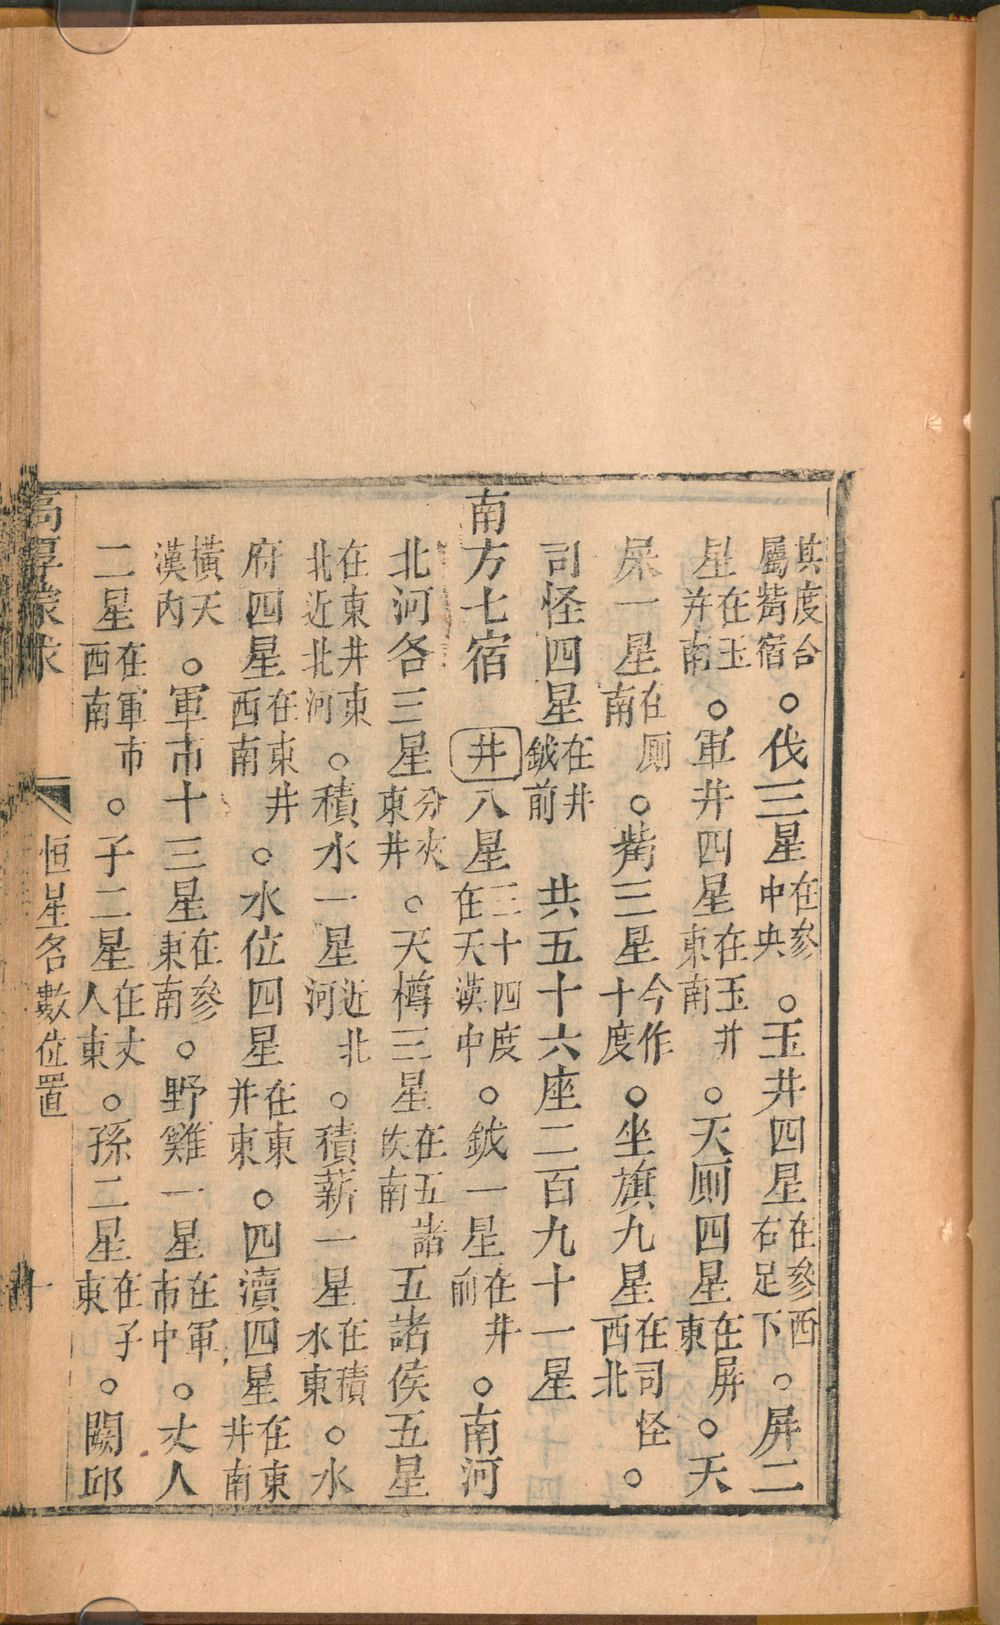 其度合屬觜宿。伐三星在參中央。玉井四星在參西右足下。屏二
星在玉井南。軍井四星在玉井東南。天厠四星在屏東。天
屎一星在厠南。觜三星今作十度。坐旗九星在司怪西北。
司怪四星在井鉞前 共五十六座二百九十一星
南方七宿 井八星三十四度在天漢中。鉞一星在井前。南河
北河各三星分夾東井。天樽三星在五諸侯南五諸侯五星
在東井東北近北河。積水一星近北河。積薪一星在積水東。水
府四星在東井西南。水位四星在東井東。四瀆四星在東井南
橫天漢內。軍市十三星在參東南。野雞一星在軍市中。丈人
二星在軍市西南。子二星在丈人東。孫二星在子東。闕邱
高厚蒙求 恒星名數位置 十